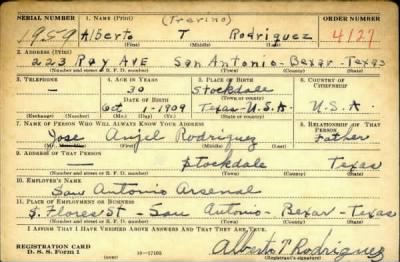 SERIAL NUMBER 1. NAME (Print) (Trevino) ORDER NUMBER
1959 Alberto T Rodriguez 4127
(First) (Middle) (Last)
2. ADDRESS (Print)
223 Ray AVE San Antonio - Bexar - Texas
(Number and street or R. F. D. number) (Town) (County) (State)
3. TELEPHONE 4. AGE IN YEARS 5. PLACE OF BIRTH 6. COUNTRY OF CITIZENSHIP
— 30 Stockdale
DATE OF BIRTH (Town or county)
Oct 1 - 1909 Texas - U.S.A U.S.A.
(Exchange) (Number) (Mo.) (Day) (Yr.) (State or country)
7. NAME OF PERSON WHO WILL ALWAYS KNOW YOUR ADDRESS 8. RELATIONSHIP OF THAT PERSON
Jose Anjel Rodriguez Father
(Mr., Mrs., Miss) (First) (Middle) (Last)
9. ADDRESS OF THAT PERSON
Stockdale Texas
(Number and street or R. F. D. number) (Town) (County) (State)
10. EMPLOYER'S NAME
San Antonio Arsenal
11. PLACE OF EMPLOYMENT OR BUSINESS
S. Flores St - San Antonio - Bexar - Texas
(Number and street or R. F. D. number) (Town) (County) (State)
I AFFIRM THAT I HAVE VERIFIED ABOVE ANSWERS AND THAT THEY ARE TRUE.
REGISTRATION CARD
D. S. S. Form 1 16—17105 Alberto T Rodriguez
(over) (Registrant's signature)